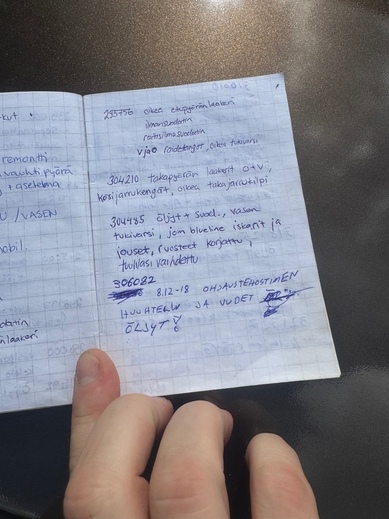 kut
remontti
vauhtipyörä
+ asetelma
/VASEN
mobil.
n laakeri
255756 oikea etupyöränlaakeri
ilmansuodatin
raitisilmasuodatin
v ja o raidetangot, oikea tukivarsi
304210 takapyörän laakerit o+v,
käsijarrukengät, oikea takajarrukilpi
304485 öljyt + suod., vasen
tukivarsi, jom blueline iskarit ja
jouset, ruosteet korjattu,
tuulilasi vaihdettu
306082
8.12-18 OHJAUSTEHOSTIMEN
HUUHTELU JA UUDET
ÖLJYT!